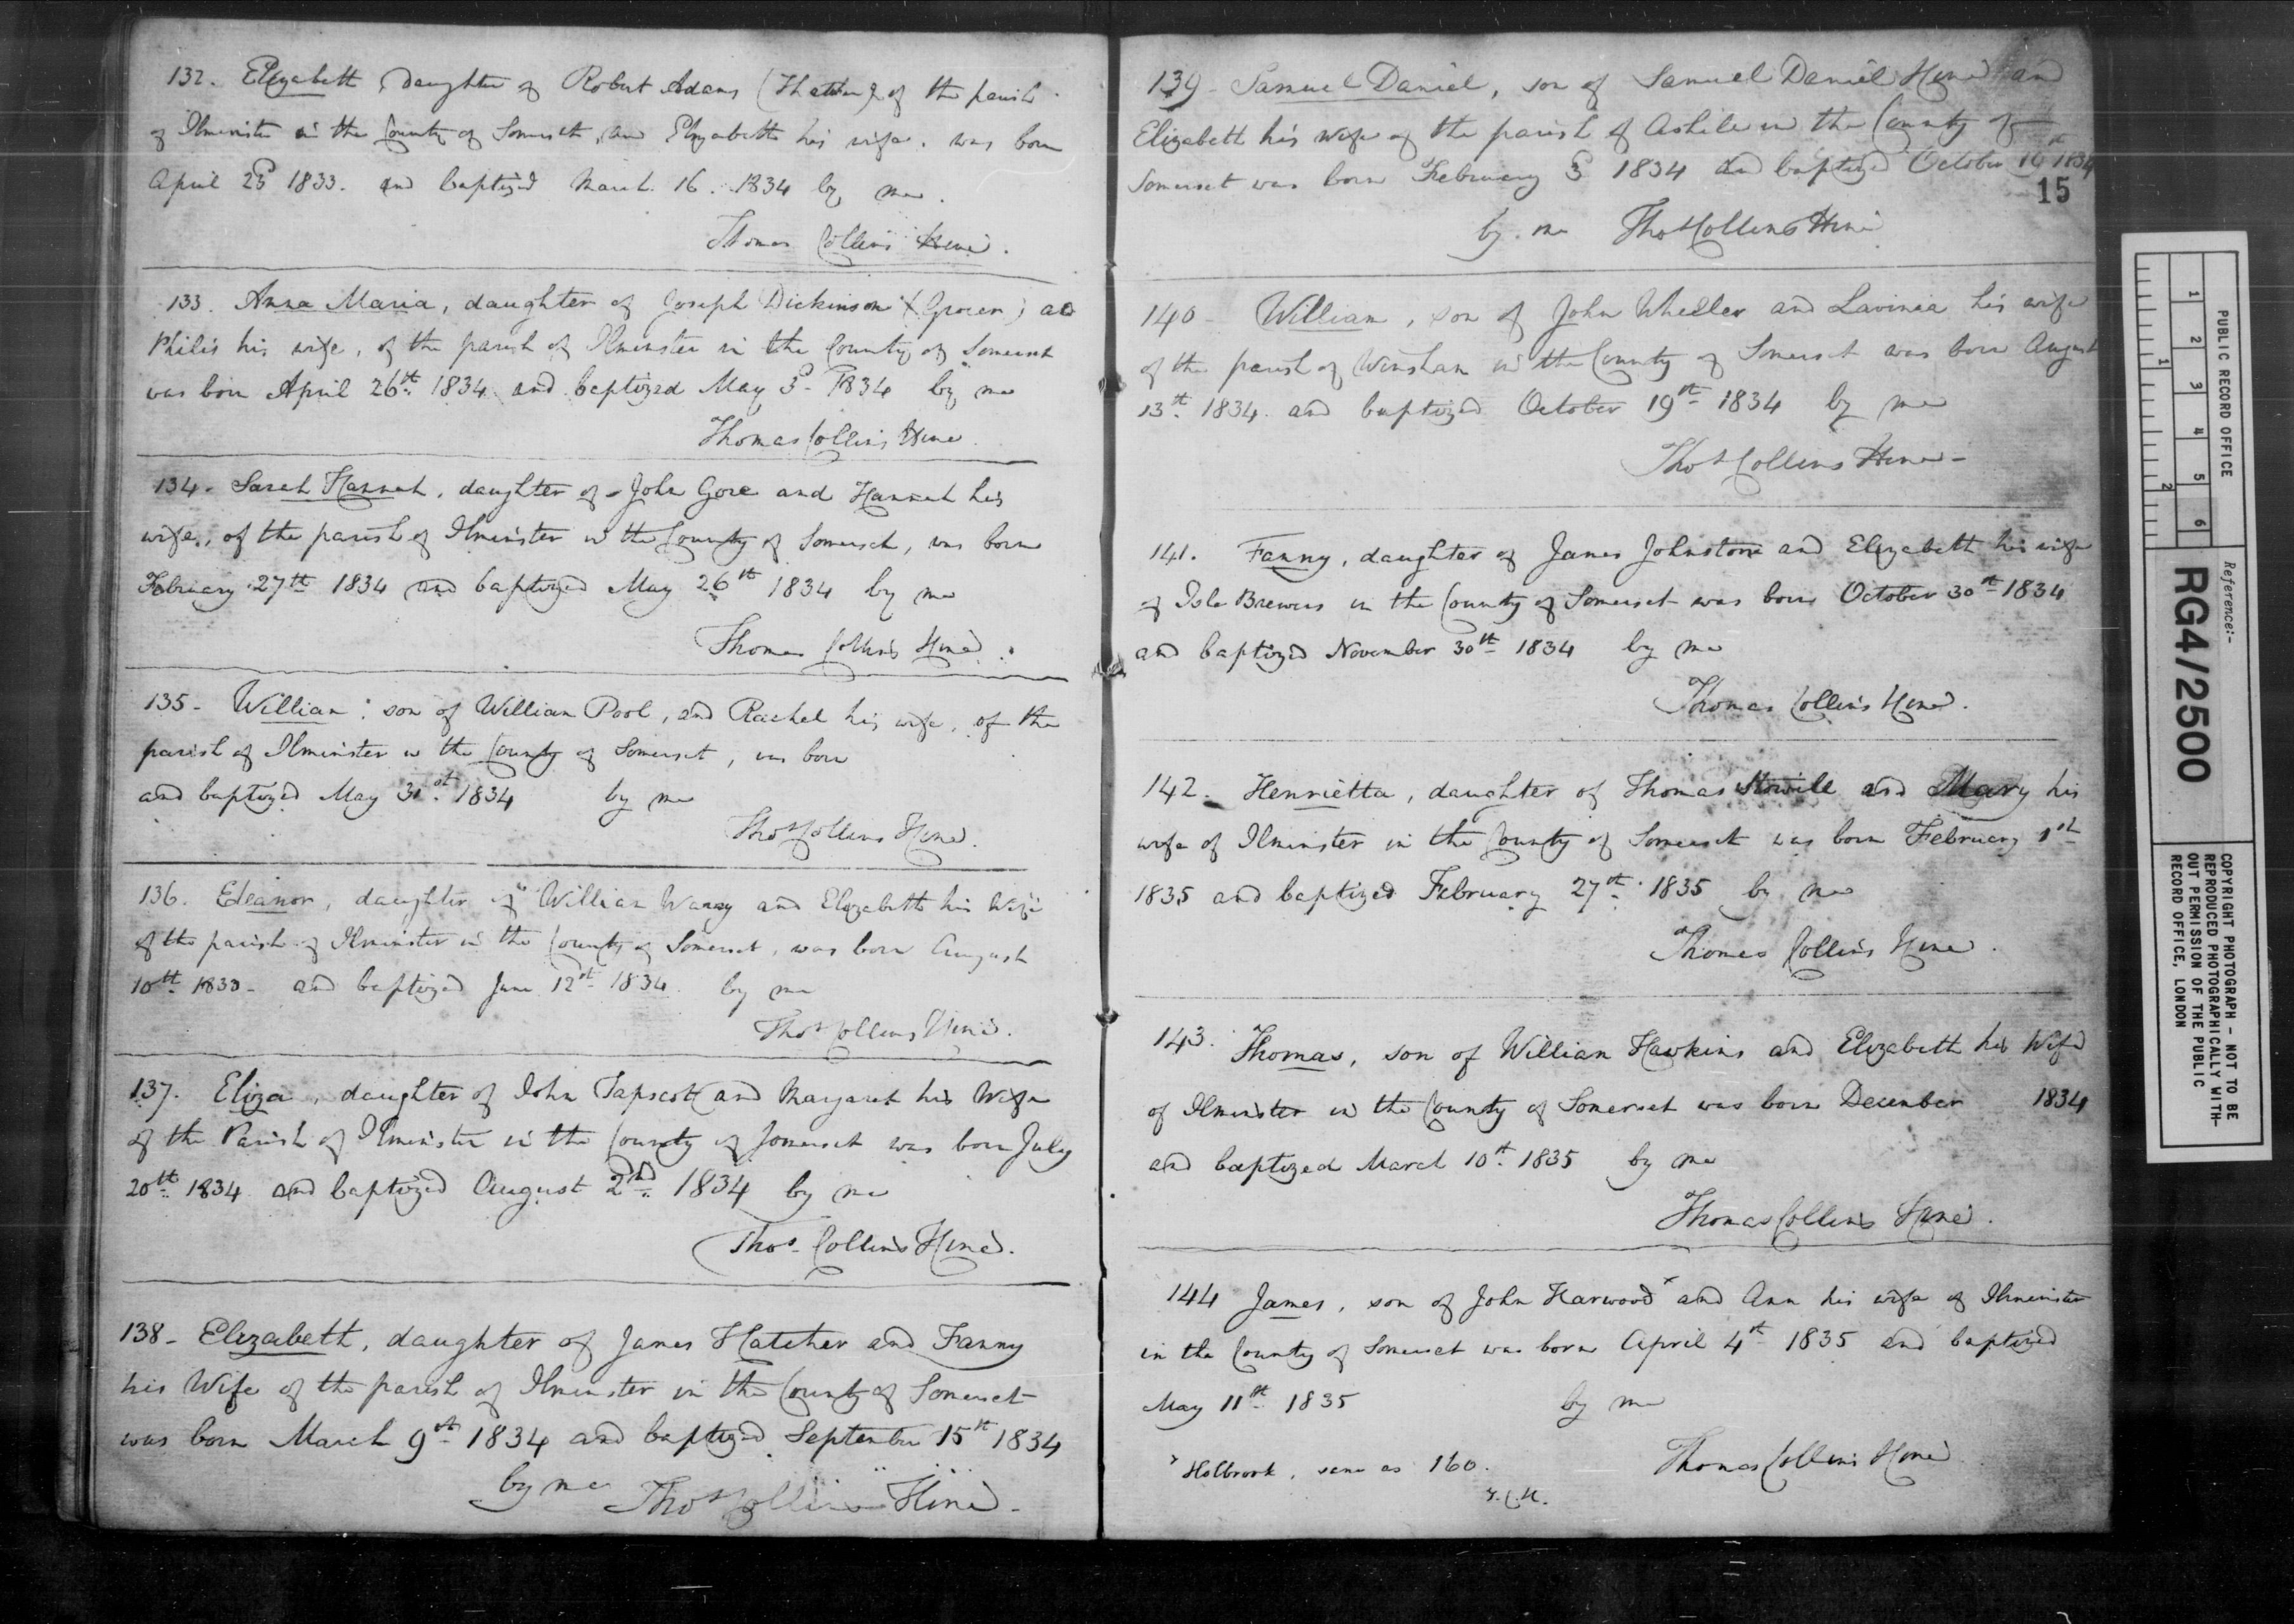 132. Elizabeth, Daughter of Robert Adams (Thatcher) of the parish
of Ilminster in the County of Somerset, and Elizabeth his wife. was born
April 23d 1833. and baptized March 16. 1834 by me.
Thomas Collins Hine.
133. Anna Maria, daughter of Joseph Dickinson (Grocer) and
Philis his wife, of the parish of Ilminster in the County of Somerset
was born April 26th. 1834 and baptized May 3d. 1834 by me
Thomas Collins Hine.
134. Sarah Hannah, daughter of John Gore and Hannah his
wife, of the parish of Ilminster in the County of Somerset, was born
February 27th 1834 and baptized May 26th 1834 by me
Thomas Collins Hine.
135- William, son of William Pool, and Rachel his wife, of the
parish of Ilminster in the County of Somerset, was born
and baptized May 31st. 1834 by me
Thos Collins Hine.
136. Eleanor, daughter of William and Elizabeth his Wife
of the parish of Ilminster in the County of Somerset, was born August
10th. 1833- and baptized June 12th 1834 by me
Thos Collins Hine.
137. Eliza, daughter of John Tapscott and Margaret his Wife
of the Parish of Ilminster in the County of Somerset was born July
20th. 1834 and baptized August 2nd. 1834 by me
Thos. Collins Hine.
138- Elizabeth, daughter of James Hatcher and Fanny
his Wife of the parish of Ilminster in the County of Somerset
was born March 9th 1834 and baptized September 15th 1834
by me Thos Collins Hine-
139- Samuel Daniel, son of Samuel Daniel Hine and
Elizabeth his Wife of the parish of in the County of
Somerset was born February 3d 1834 and baptized October 10th 1834
15
by me Thos Collins Hine
140- William, son of John Wheller and Lavinia his wife
of the parish of Winsham in the County of Somerset was born August
13th. 1834. and baptized October 19th 1834 by me
Thos Collins Hine-
141. Fanny, daughter of James Johnstone and Elizabeth his wife
of Isle Brewers in the County of Somerset was born October 30th 1834
and baptized November 30th 1834 by me
Thomas Collins Hine.
142. Henrietta, daughter of Thomas and Mary his
wife of Ilminster in the County of Somerset was born February 1st
1835 and baptized February 27th. 1835 by me
Thomas Collins Hine.
143. Thomas, son of William Hawkins and Elizabeth his Wife
of Ilminster in the County of Somerset was born December 1834
and baptized March 10th. 1835 by me
Thomas Collins Hine.
144 James, son of John Harwood x and Ann his wife of Ilminster
in the County of Somerset was born April 4th 1835 and baptized
May 11th. 1835 by me
x Holbrook, same as 160. Thomas Collins Hine
T.C.H.
PUBLIC RECORD OFFICE
1 2 3 4 5 6
1 2
Reference:-
RG4/2500
COPYRIGHT PHOTOGRAPH - NOT TO BE
REPRODUCED PHOTOGRAPHICALLY WITH-
OUT PERMISSION OF THE PUBLIC
RECORD OFFICE, LONDON